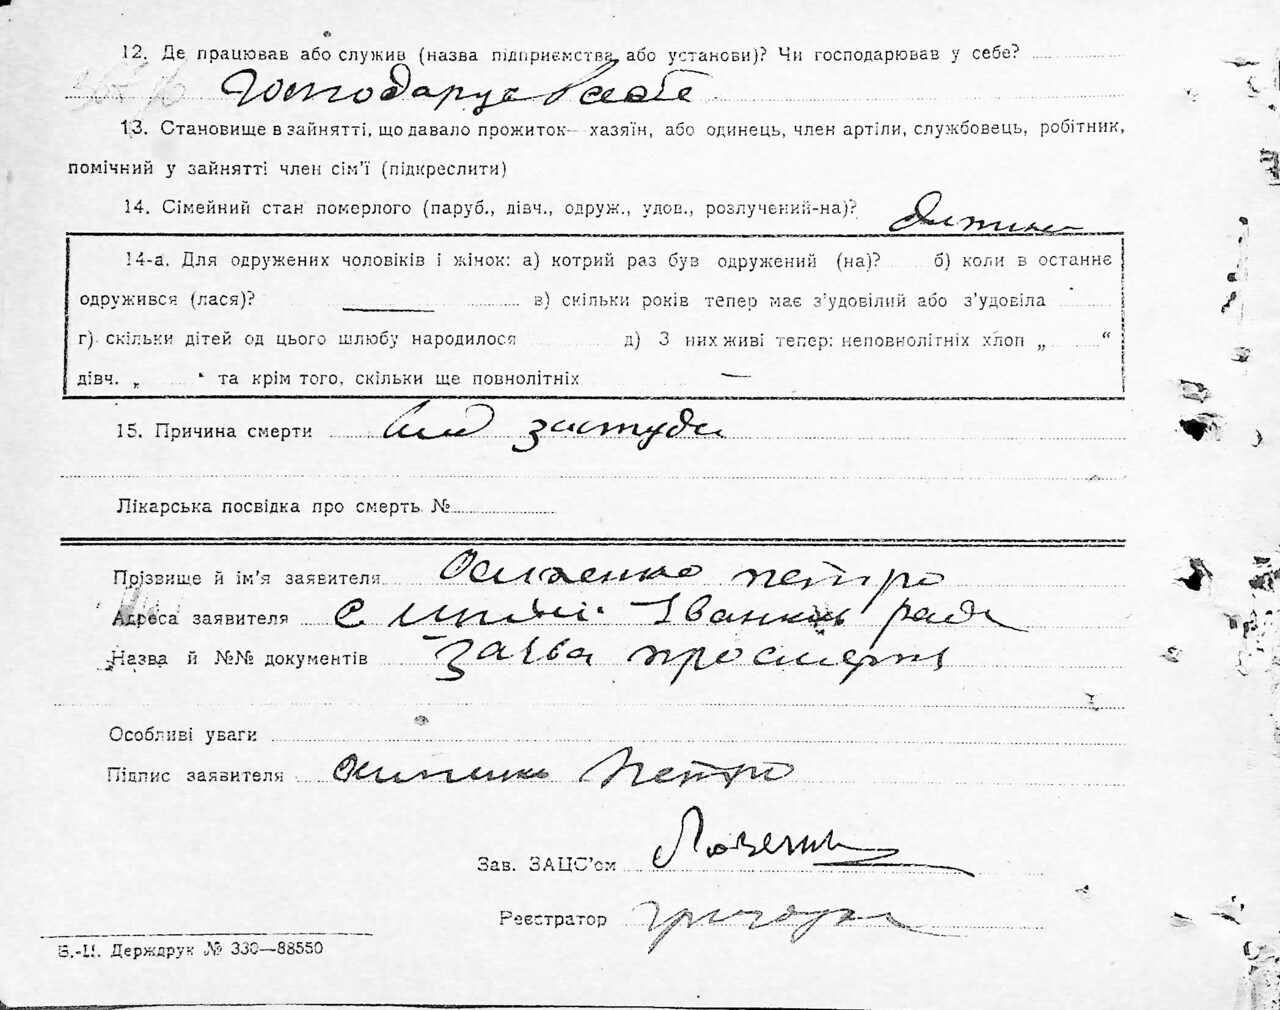 12. Де працював або служив (назва підприємства або установи)? Чи господарював у себе?
Господарує в себе
13. Становище в зайнятті, що давало прожиток— хазяїн, або одинець, член артіли, службовець, робітник,
помічний у зайнятті член сім'ї (підкреслити)
14. Сімейний стан померлого (паруб., дівч., одруж., удов., розлучений-на)? Дитина
14-а. Для одружених чоловіків і жінок: а) котрий раз був одружений (на)? б) коли в останнє
одружився (лася)? — в) скільки років тепер має з'удовілий або з'удовіла
г) скільки дітей од цього шлюбу народилося д) З них живі тепер: неповнолітніх хлоп „ “
дівч. „ “ та крім того, скільки ще повнолітніх —
15. Причина смерти Від застуди
Лікарська посвідка про смерть №
Прізвище й ім'я заявителя Осипенко Петро
Адреса заявителя с. рада
Назва й №№ документів Заява про смерть
Особливі уваги
Підпис заявителя Осипенко Петро
Зав. ЗАЦС'ом
Реєстратор
Б.-Ц. Держдрук № 330—88550